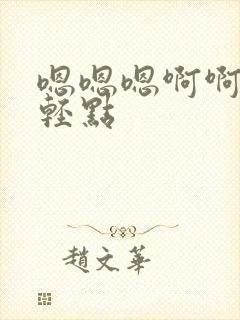 嗯嗯嗯啊啊
輕點
趙文華